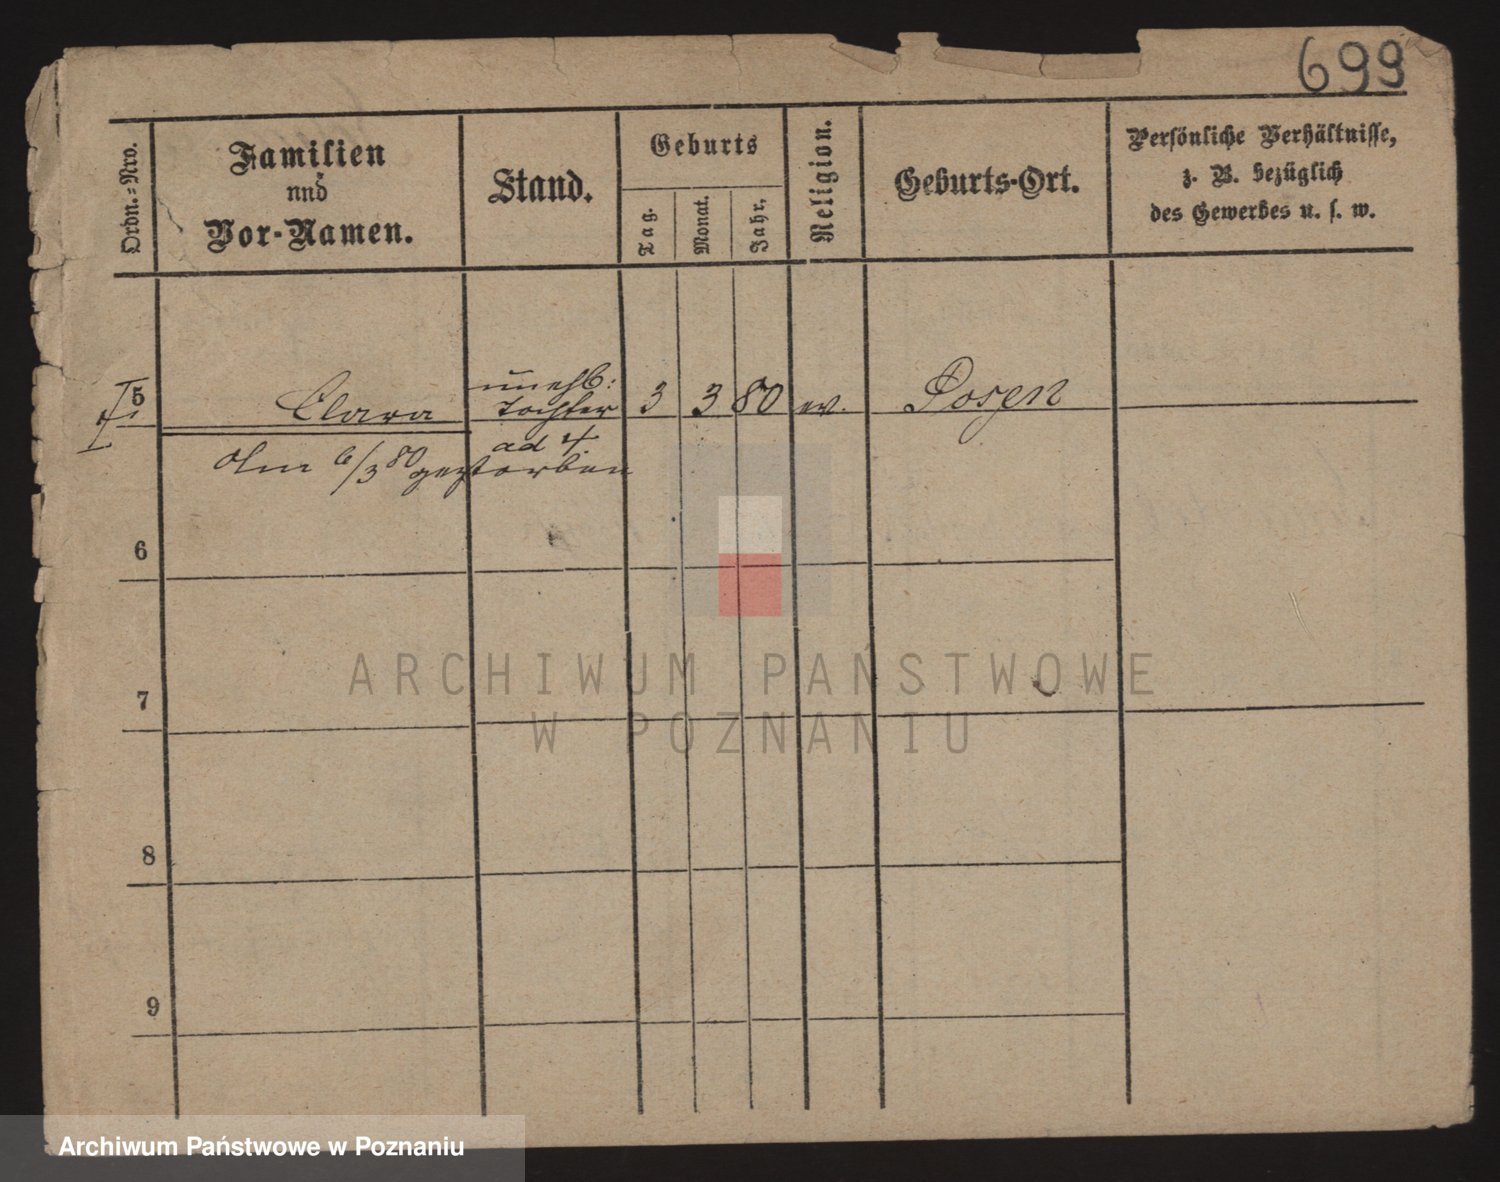 699
Ordn.-Nro.
Familien
und
Vor-Namen.
Stand.
Geburts
Tag.
Monat.
Jahr.
Religion.
Geburts-Ort.
Persönliche Verhältnisse,
z. B. bezüglich
des Gewerbes u. s. w.
5
Clara
unehl:
Tochter
ad 4.
3
3
80
ev.
Posen
Am 6/3 80 gestorben
6
7
8
9
ARCHIWUM PAŃSTWOWE
W POZNANIU
Archiwum Państwowe w Poznaniu